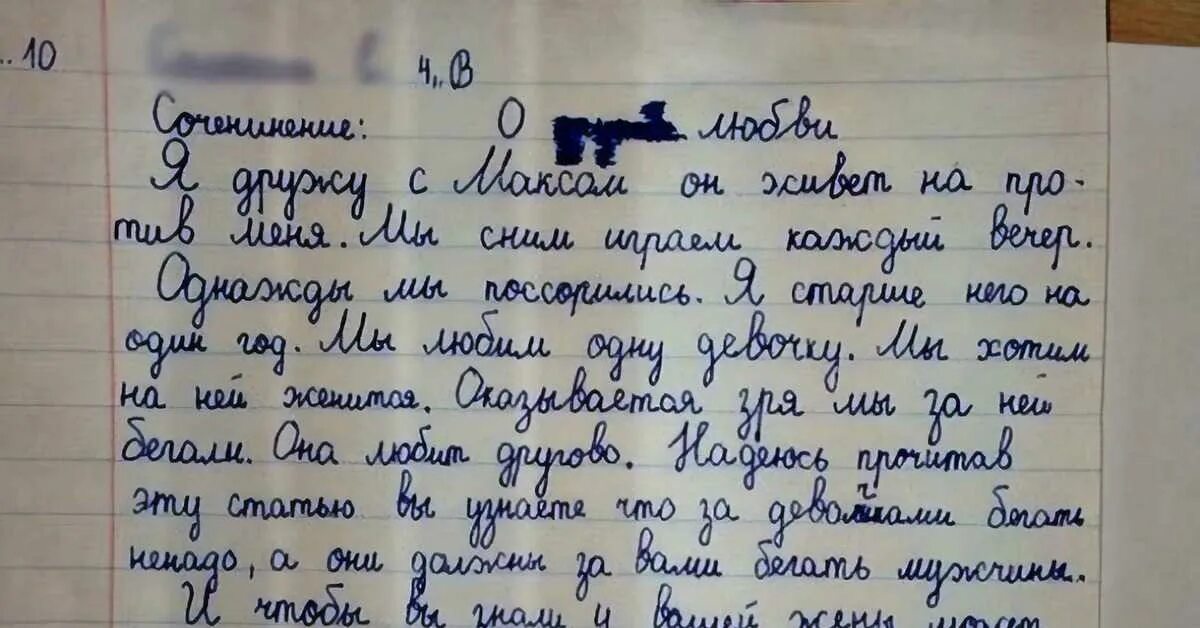 ..10
4„В
Соченинение: О любви
Я дружу с Максом он живет на про-
тив меня. Мы сним играем каждый вечер.
Однажды мы поссорились. Я старше него на
один год. Мы любим одну девочку. Мы хотим
на ней женится. Оказывается зря мы за ней
бегали. Она любит другово. Надеюсь прочитав
эту статью вы узнаете что за девочками бегать
ненадо, а они должны за вами бегать мужчины.
И чтобы вы знали у вашей жены может